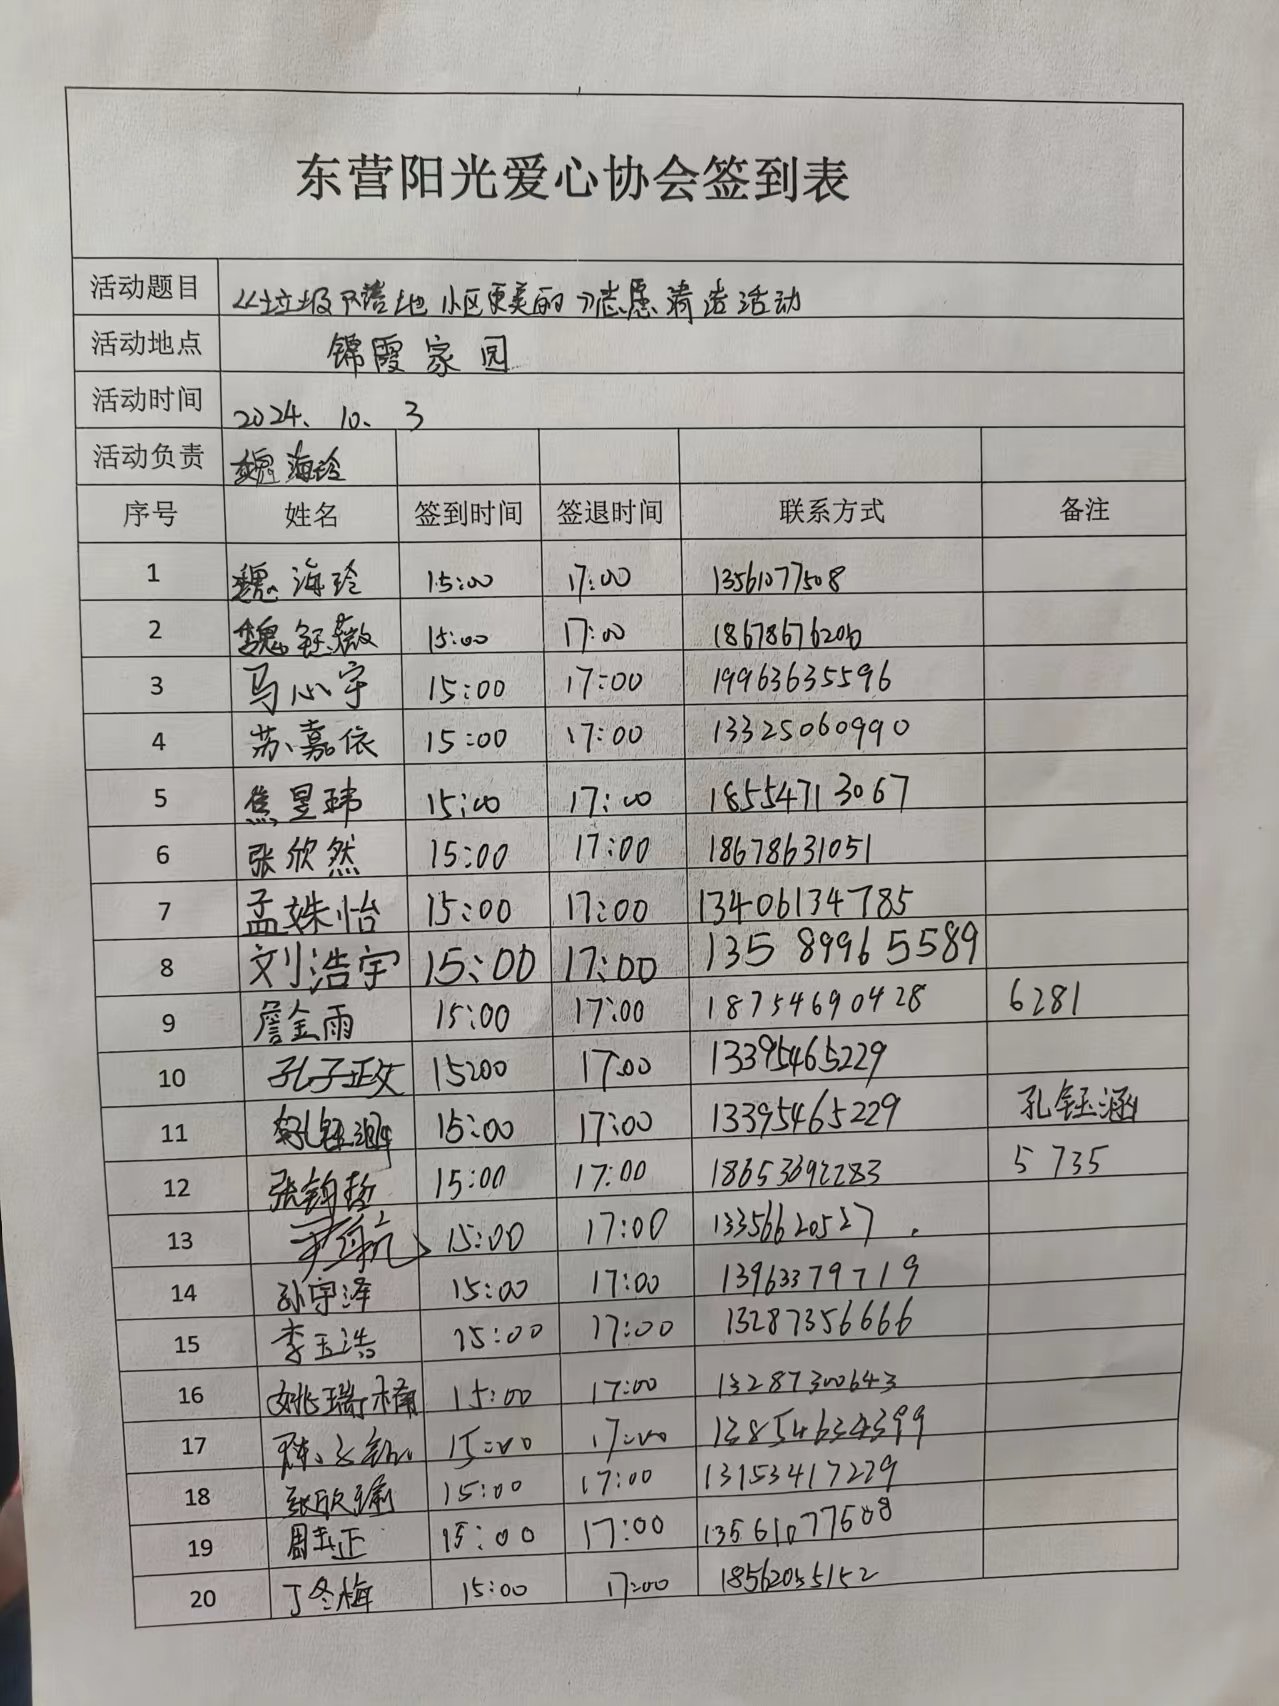 东营阳光爱心协会签到表
活动题目 《垃圾不落地 小区更美的》志愿清洁活动
活动地点 锦霞家园
活动时间 2024、10、3
活动负责 魏海玲
序号 姓名 签到时间 签退时间 联系方式 备注
1 魏海玲 15:00 17:00 13561077508
2 魏钰薇 15:00 17:00 18678676200
3 马心宇 15:00 17:00 19963635596
4 苏嘉依 15:00 17:00 13325060990
5 焦昱玮 15:00 17:00 18554713067
6 张欣然 15:00 17:00 18678631051
7 孟姝怡 15:00 17:00 13406134785
8 刘浩宇 15:00 17:00 13589965589
9 詹金雨 15:00 17:00 18754690428 6281
10 孔子正 15:00 17:00 13395465229
11 15:00 17:00 13395465229 孔钰涵
12 张钧哲 15:00 17:00 18653692283 5735
13 15:00 17:00 13356620527
14 孙宇泽 15:00 17:00 13963379719
15 李玉浩 15:00 17:00 13287356666
16 姚瑞楠 15:00 17:00 13287300643
17 15:00 17:00 13854634399
18 张欣瑜 15:00 17:00 13153417229
19 周士正 15:00 17:00 13561077508
20 丁冬梅 15:00 17:00 18562055152